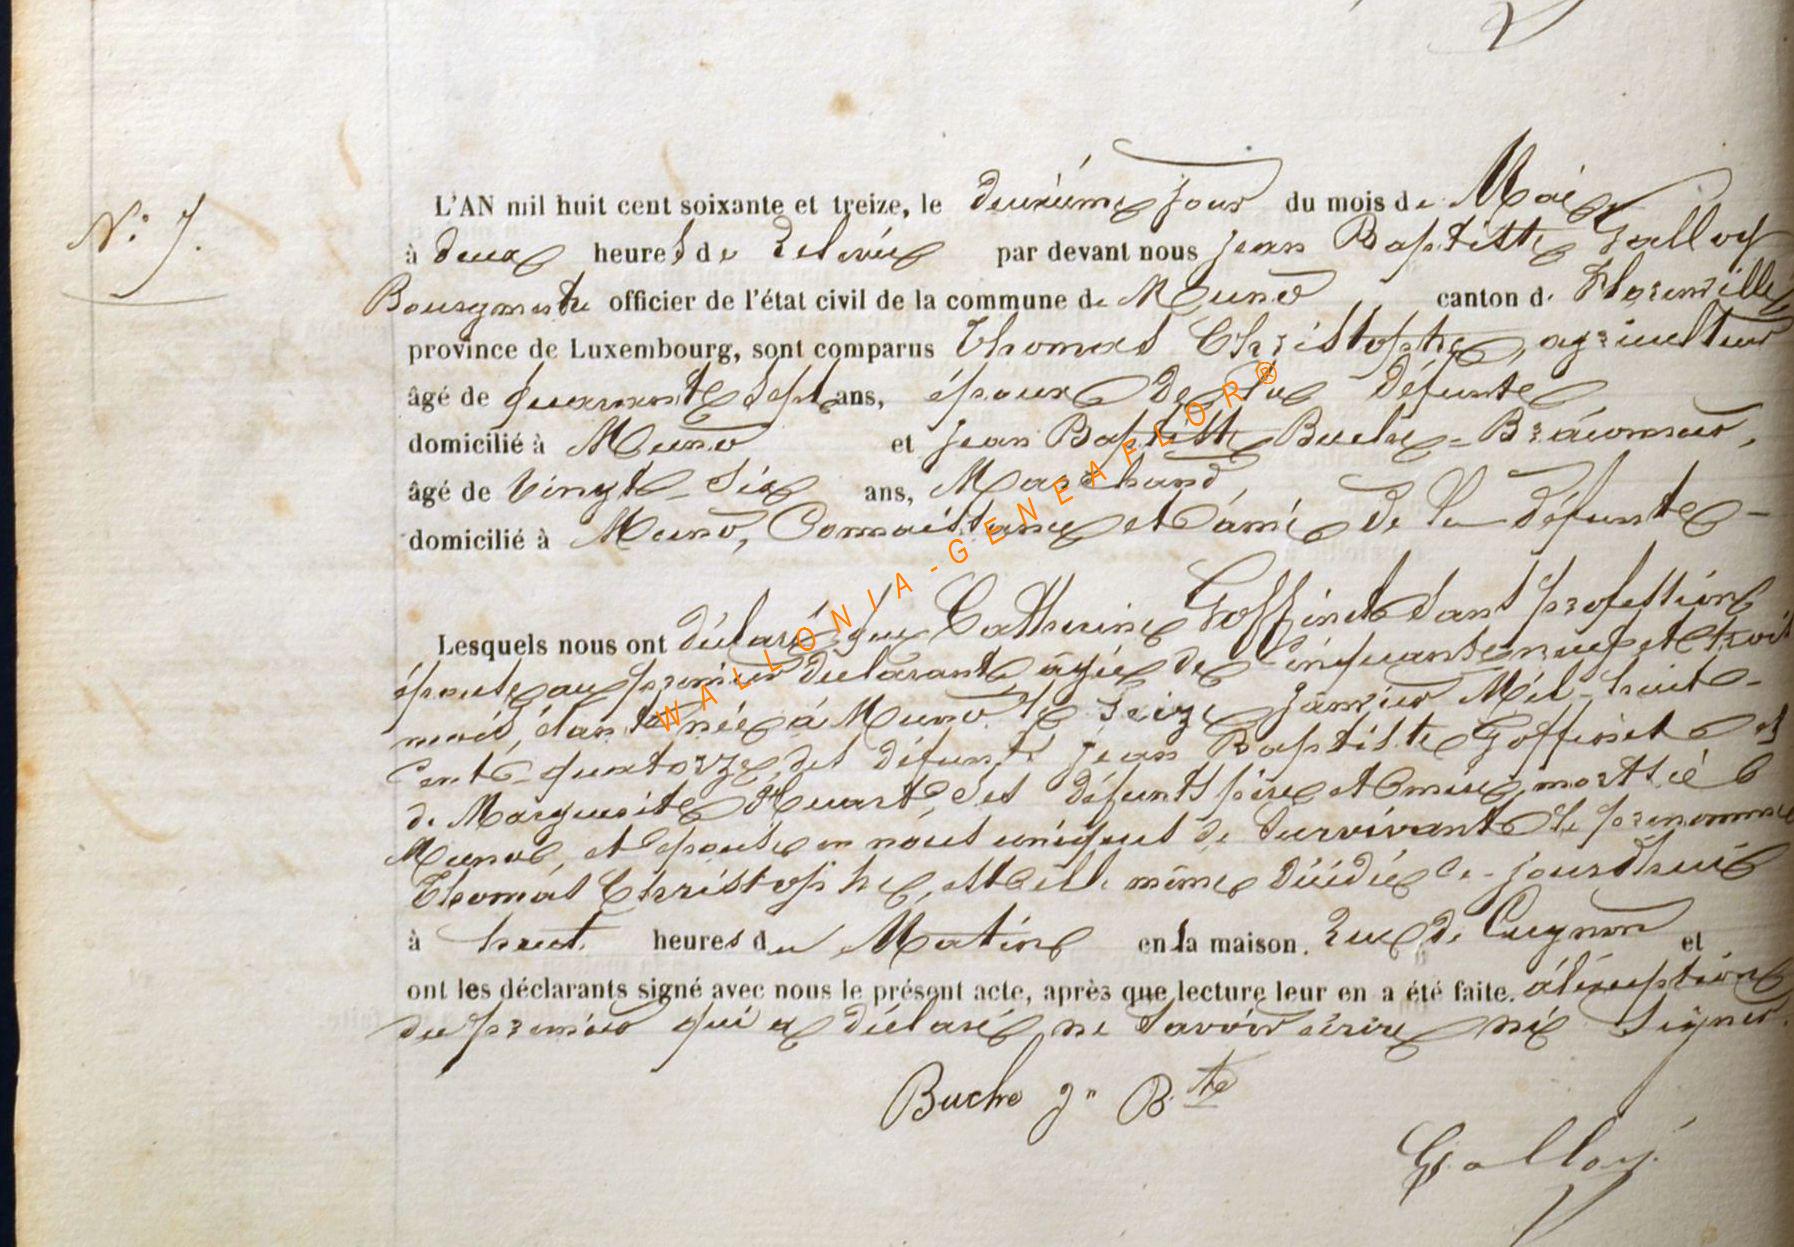 N° 7.
L'AN mil huit cent soixante et treize, le deuxième jour du mois de Mai
à deux heures de relevée par devant nous Jean Baptiste Galloy
Bourgmestre officier de l'état civil de la commune de Muno canton de Florenville
province de Luxembourg, sont comparus Thomas Christophe, agriculteur
âgé de quarante sept ans, époux de la défunte
domicilié à Muno et Jean Baptiste Buche-
âgé de vingt-six ans, Marchand
domicilié à Muno, Connaissance et ami de la défunte-
Lesquels nous ont déclaré que Catherine Goffinet sans profession
épouse au premier déclarant âgée de cinquante neuf et trois
mois, étant née à Muno le seize Janvier Mil-huit-
cent-quatorze, des défunt Jean Baptiste Goffinet et
de Marguerite Huart, ses défunts père et mère, morts à
Muno, et épouse en noces uniques de survivant le prénommé
Thomas Christophe, est elle même décédée ce-jourd'hui
à huit heures du Matin en la maison. Rue de Cugnon et
ont les déclarants signé avec nous le présent acte, après que lecture leur en a été faite. à l'exception
du premier qui a déclaré ne savoir écrire ni signer.
Buche Jn Bte
Galloy.
WALLONIA-GENEAFLOR®